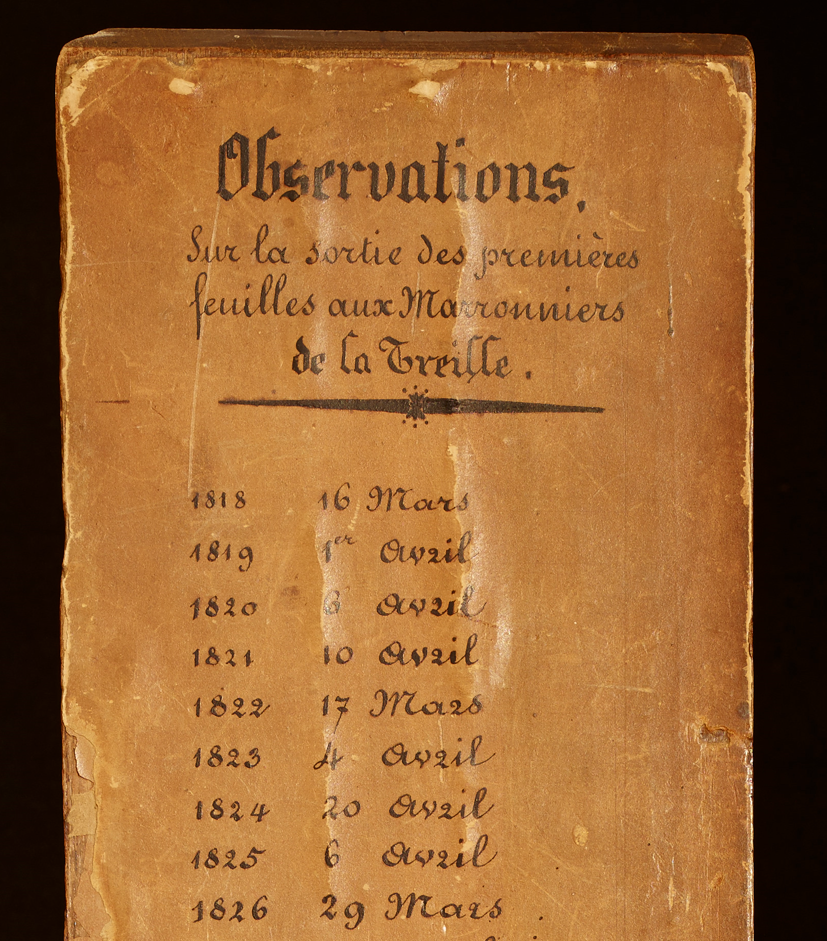 Observations,
Sur la sortie des premières
feuilles aux Marronniers
de la Treille.
1818 16 Mars
1819 1er Avril
1820 6 Avril
1821 10 Avril
1822 17 Mars
1823 4 Avril
1824 20 Avril
1825 6 Avril
1826 29 Mars